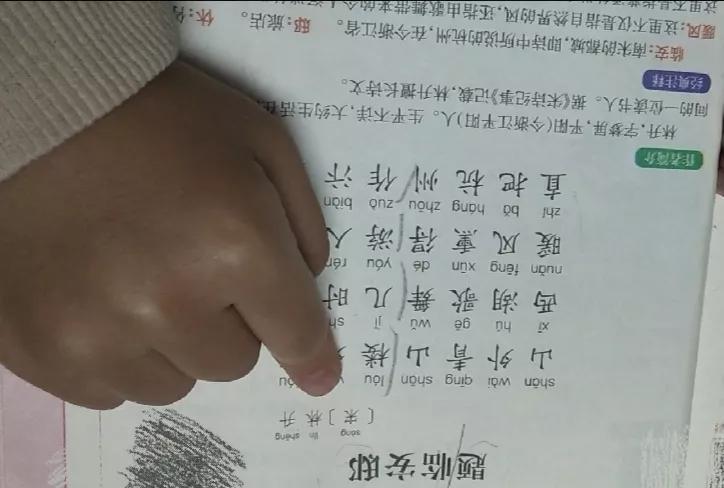 题临安邸
sòng lín shēng
〔宋〕林升
shān wài qīng shān lóu
山外青山楼
xī hú gē wǔ jǐ sh
西湖歌舞几时
nuǎn fēng xūn dé yóu rén
暖风熏得游人
zhí bǎ háng zhōu zuò biàn
直把杭州作汴
作者简介
林升,字梦屏,平阳(今浙江平阳)人。生平不详,大约生活在
间的一位读书人。据《宋诗纪事》记载,林升擅长诗文。
经典注释
临安:南宋的都城,即诗中所说的杭州,在今浙江省。 邸:旅店。 休:
暖风:这里不仅是指自然界的风,还指由歌舞带来的